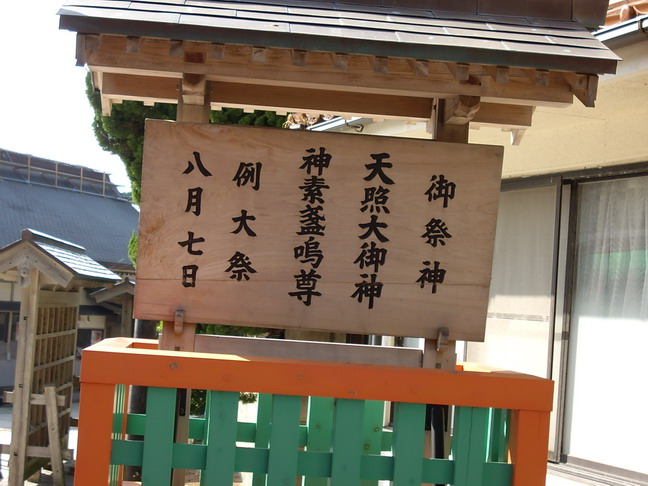 御祭神
天照大御神
神素盞嗚尊
例大祭
八月七日